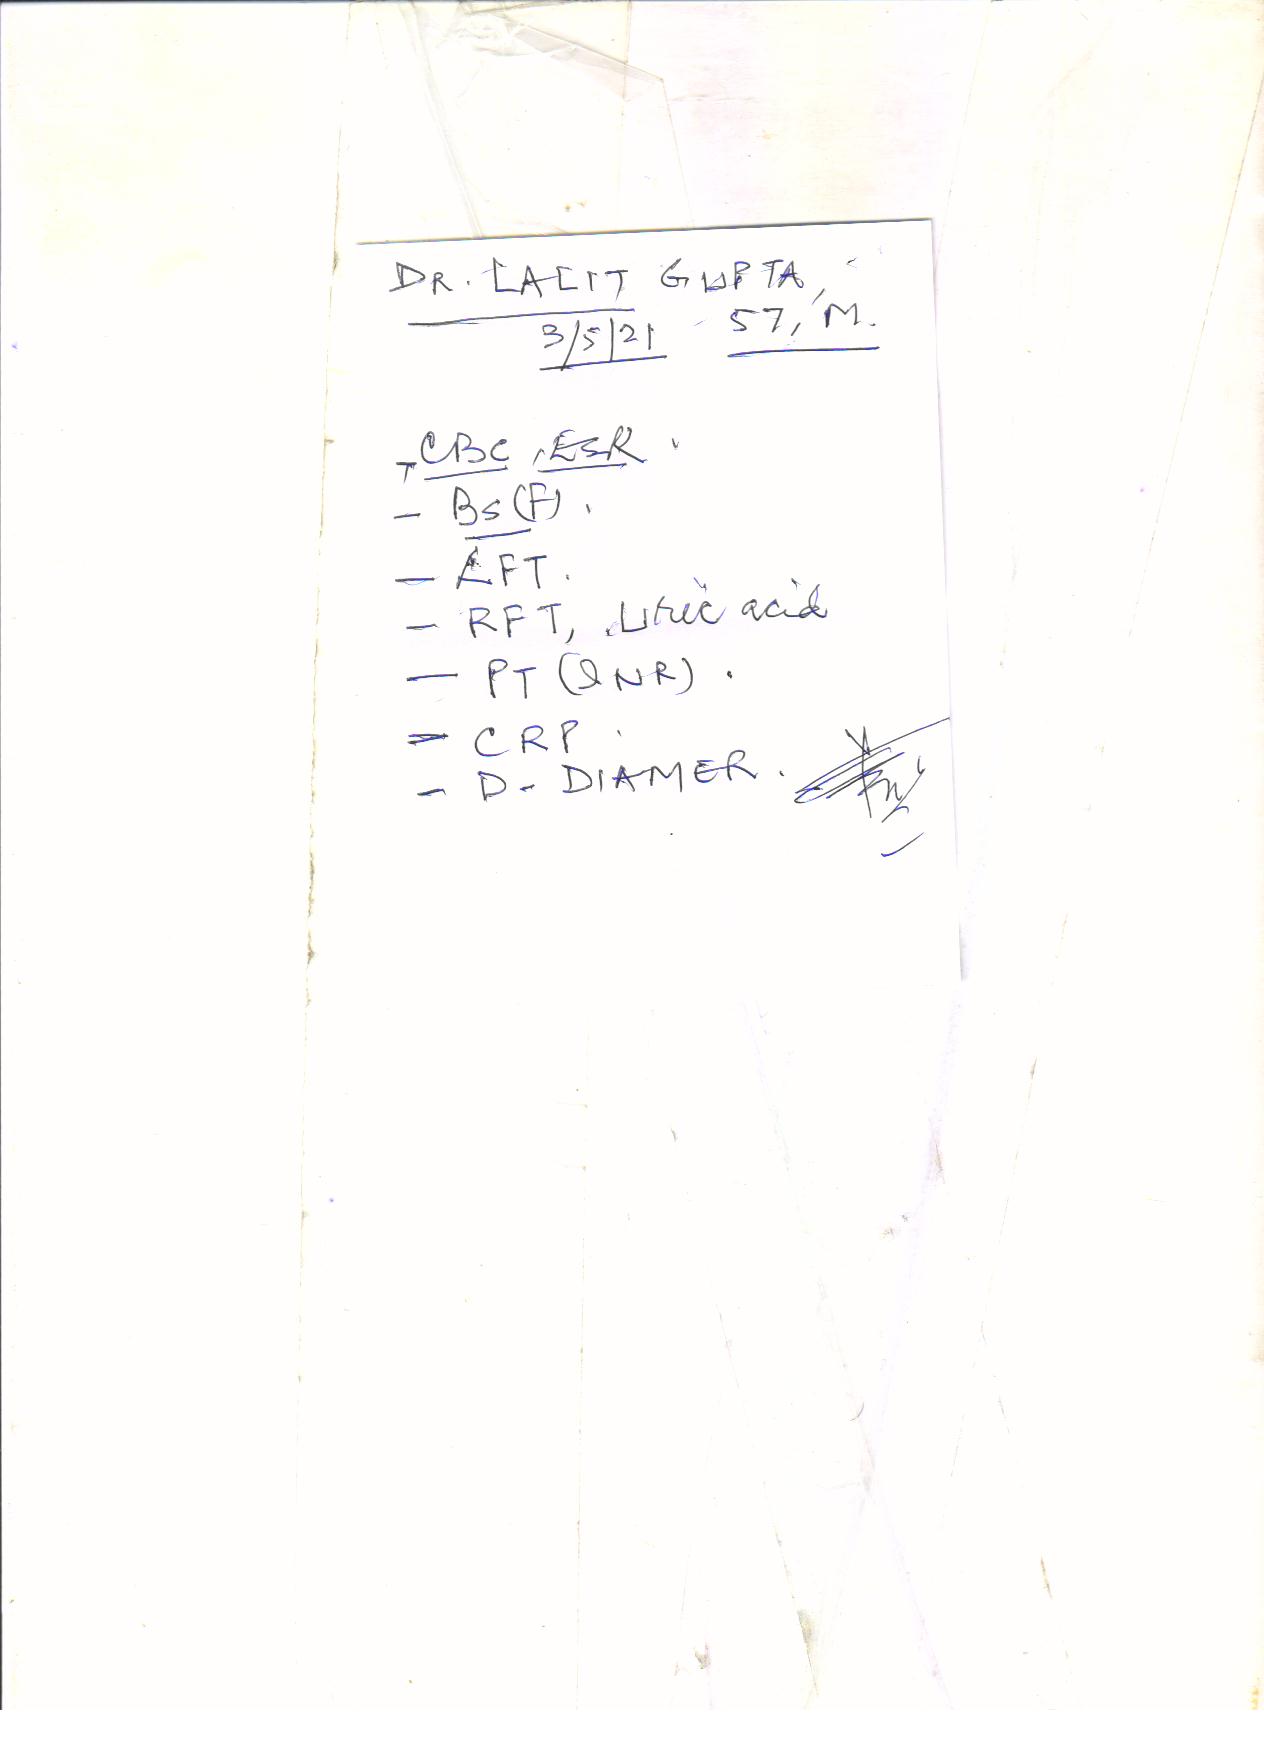 DR. LALIT GUPTA,
3/5/21 57, M.
- CBC, ESR.
- BS (F).
- LFT.
- RFT, Uric acid
- PT (INR).
- CRP.
- D- DIAMER.